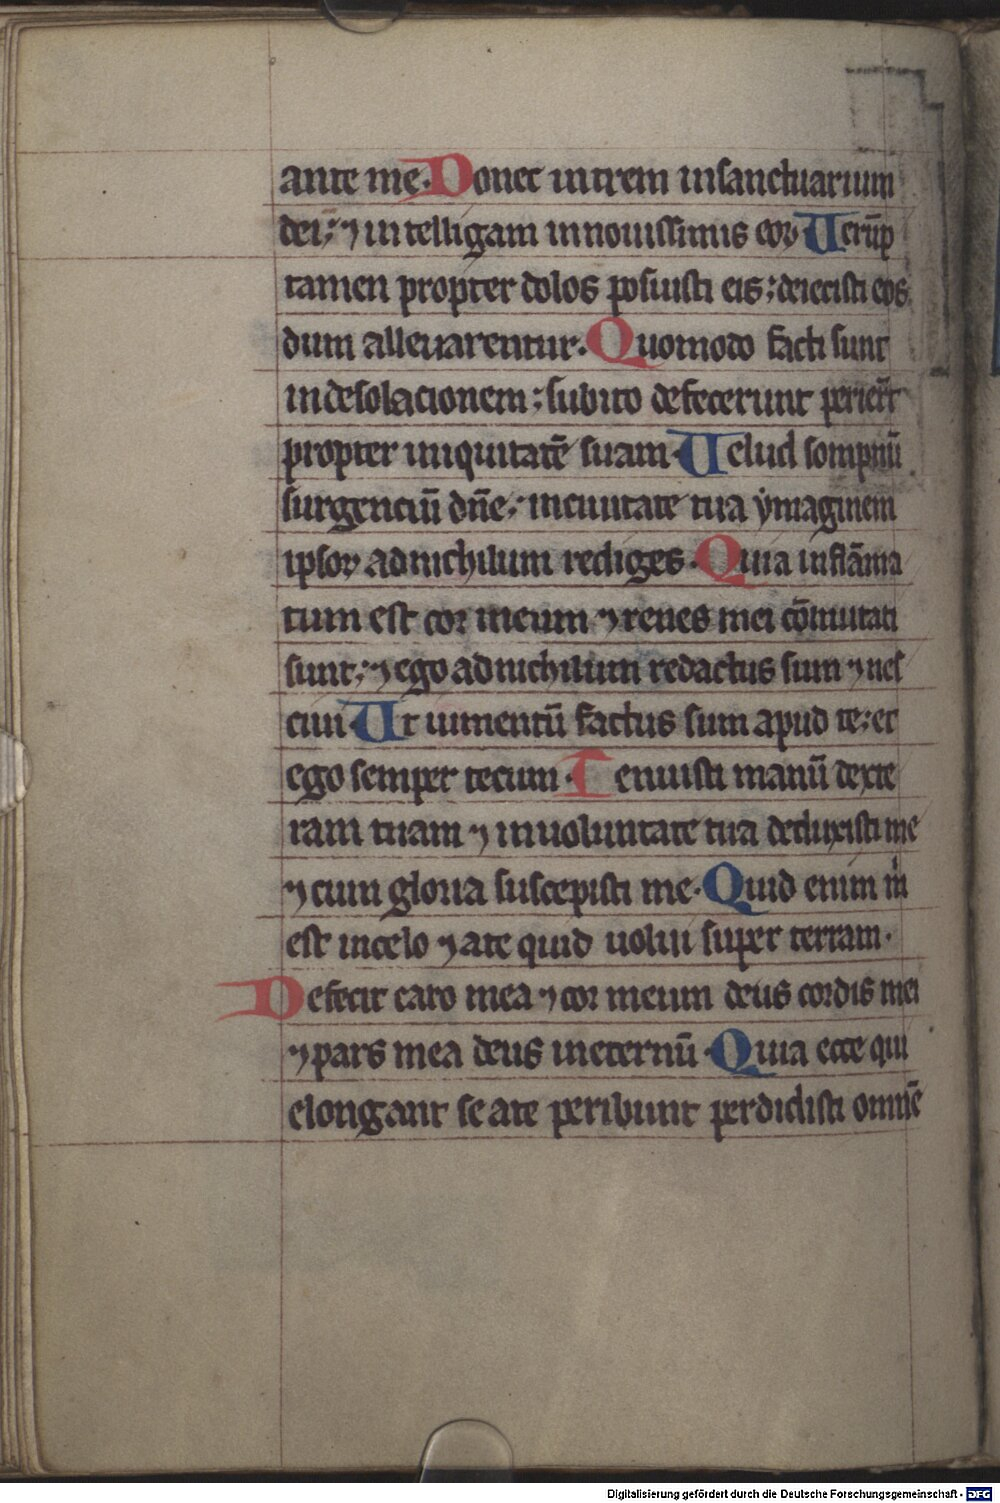 ante me. Donec intrem in sanctuarium
dei; ⁊ intelligam in nouissimis eoꝝ Uerūp
tamen propter dolos posuisti eis; deiecisti eos
dum alleuarentur. Quomodo facti sunt
in desolacionem; subito defecerunt perierūt
propter iniquitatē suam Uelud sompnū
surgenciū dn̄e; in ciuitate tua ẏmaginem
ipsoꝝ ad nichilum rediges. Quia inflāma
tum est cor meum ⁊ renes mei cōmutati
sunt; ⁊ ego ad nichilum redactus sum ⁊ nes
ciui Ut iumentū factus sum apud te; et
ego semper tecum. Tenuisti manū dexte
ram tuam ⁊ in uoluntate tua deduxisti me
⁊ cum gloria suscepisti me. Quid enim m̄
est in celo ⁊ a te quid uolui super terram.
Defecit caro mea ⁊ cor meum deus cordis mei
⁊ pars mea deus in eternū. Quia ecce qui
elongant se a te peribunt perdidisti omnē
Digitalisierung gefördert durch die Deutsche Forschungsgemeinschaft - DFG